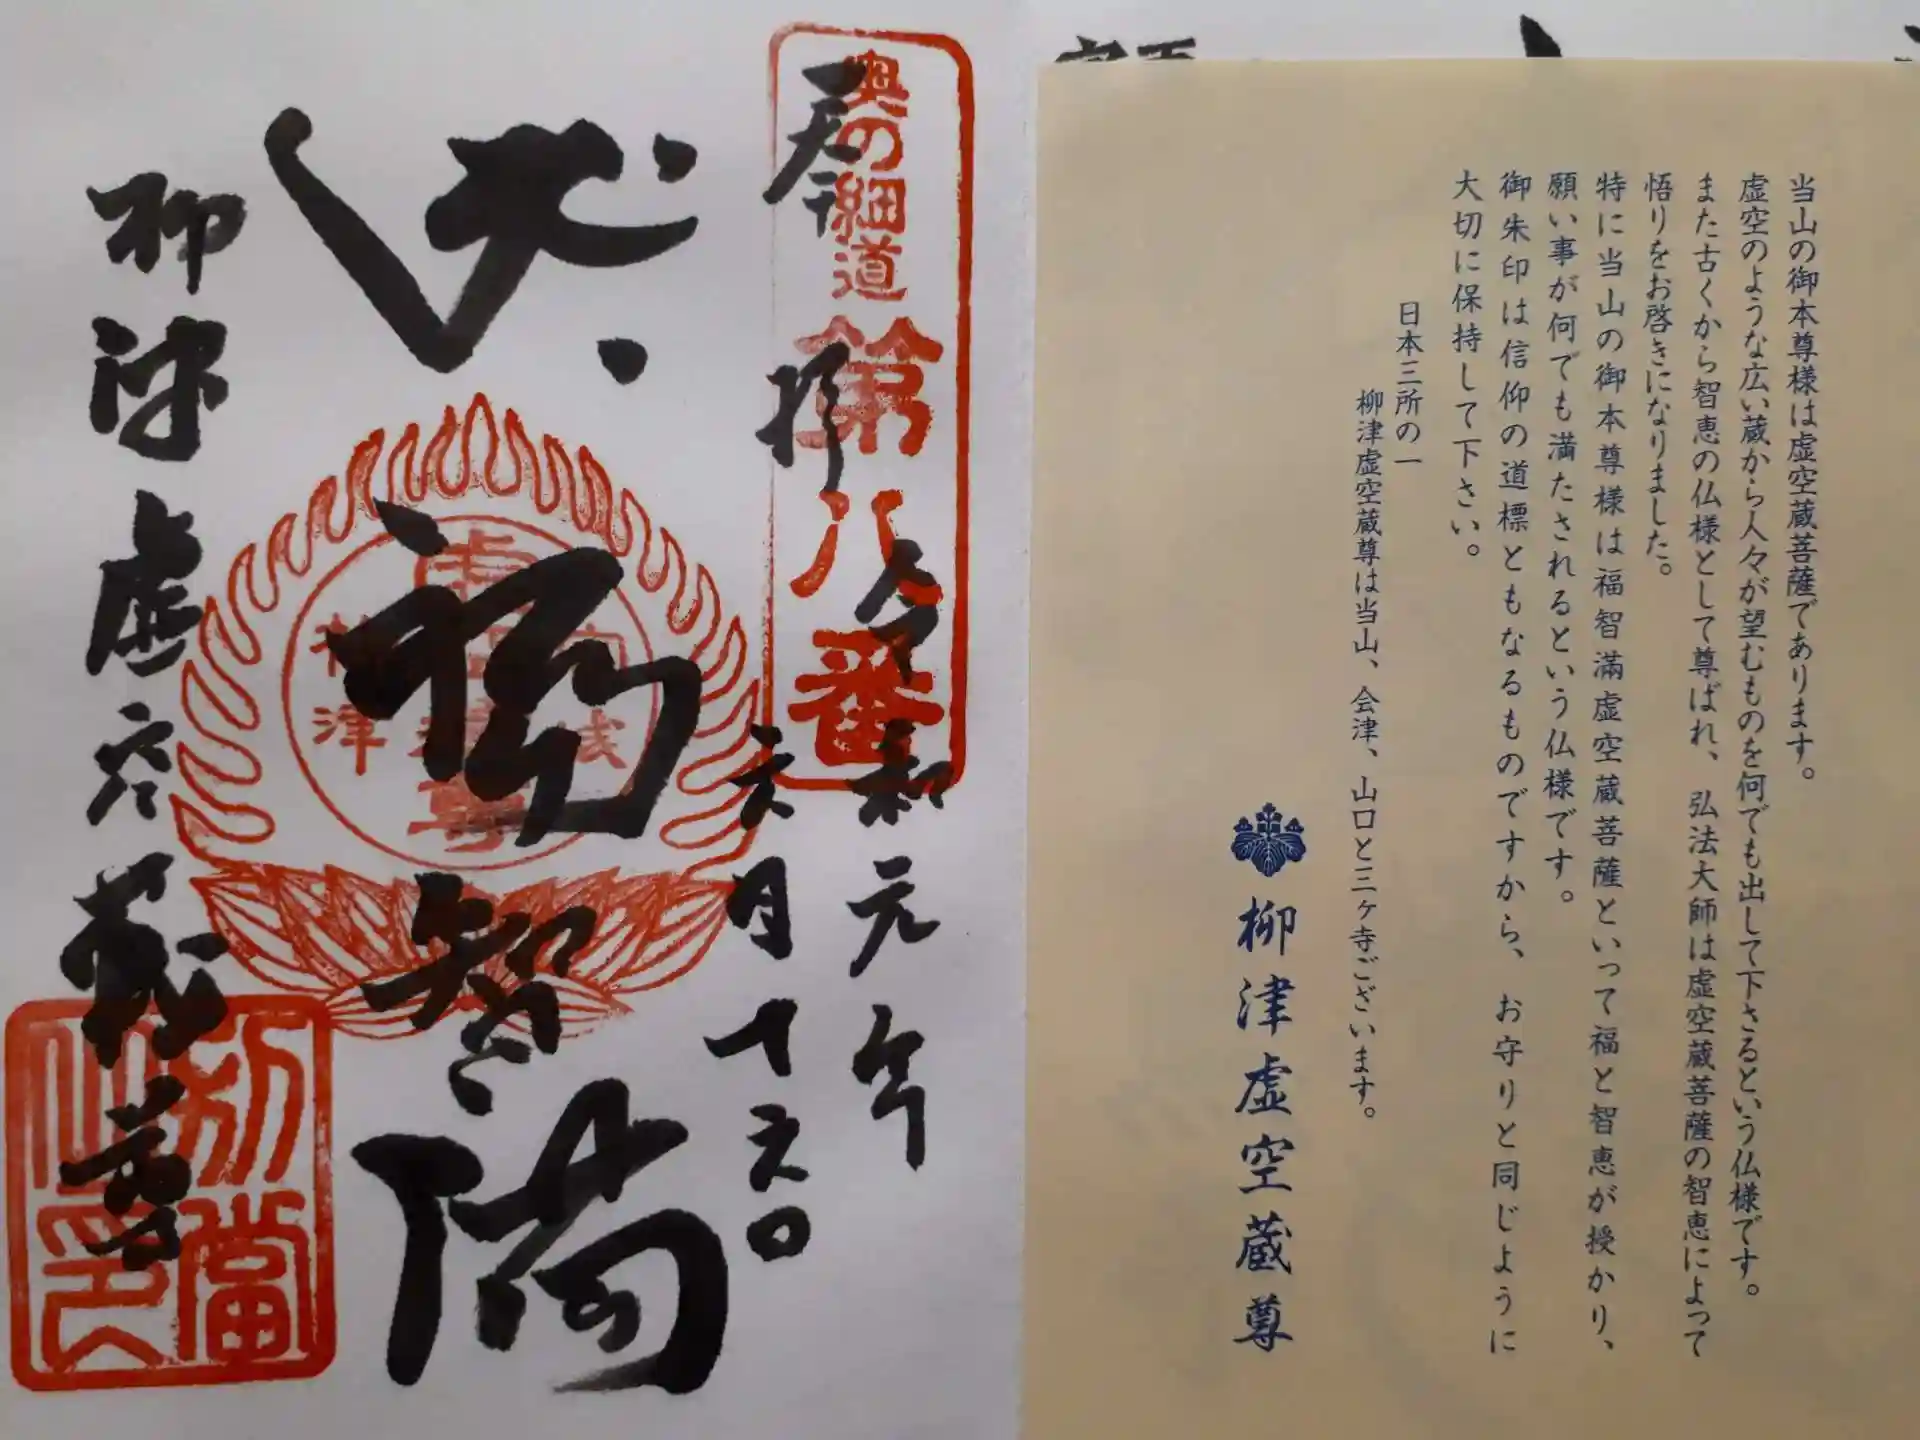 当山の御本尊様は虚空蔵菩薩であります。
虚空のような広い蔵から人々が望むものを何でも出して下さるという仏様です。
また古くから智恵の仏様として尊ばれ、弘法大師は虚空蔵菩薩の智恵によって
悟りをお啓きになりました。
特に当山の御本尊様は福智満虚空蔵菩薩といって福と智恵が授かり、
願い事が何でも満たされるという仏様です。
御朱印は信仰の道標ともなるものですから、お守りと同じように
大切に保持して下さい。
日本三所の一
柳津虚空蔵尊は当山、会津、山口と三ヶ寺ございます。
柳津虚空蔵尊
奥の細道
第八番
奉拝
令和元年
六月十六日
福智満
柳津虚空蔵尊
柳津
別當
之印